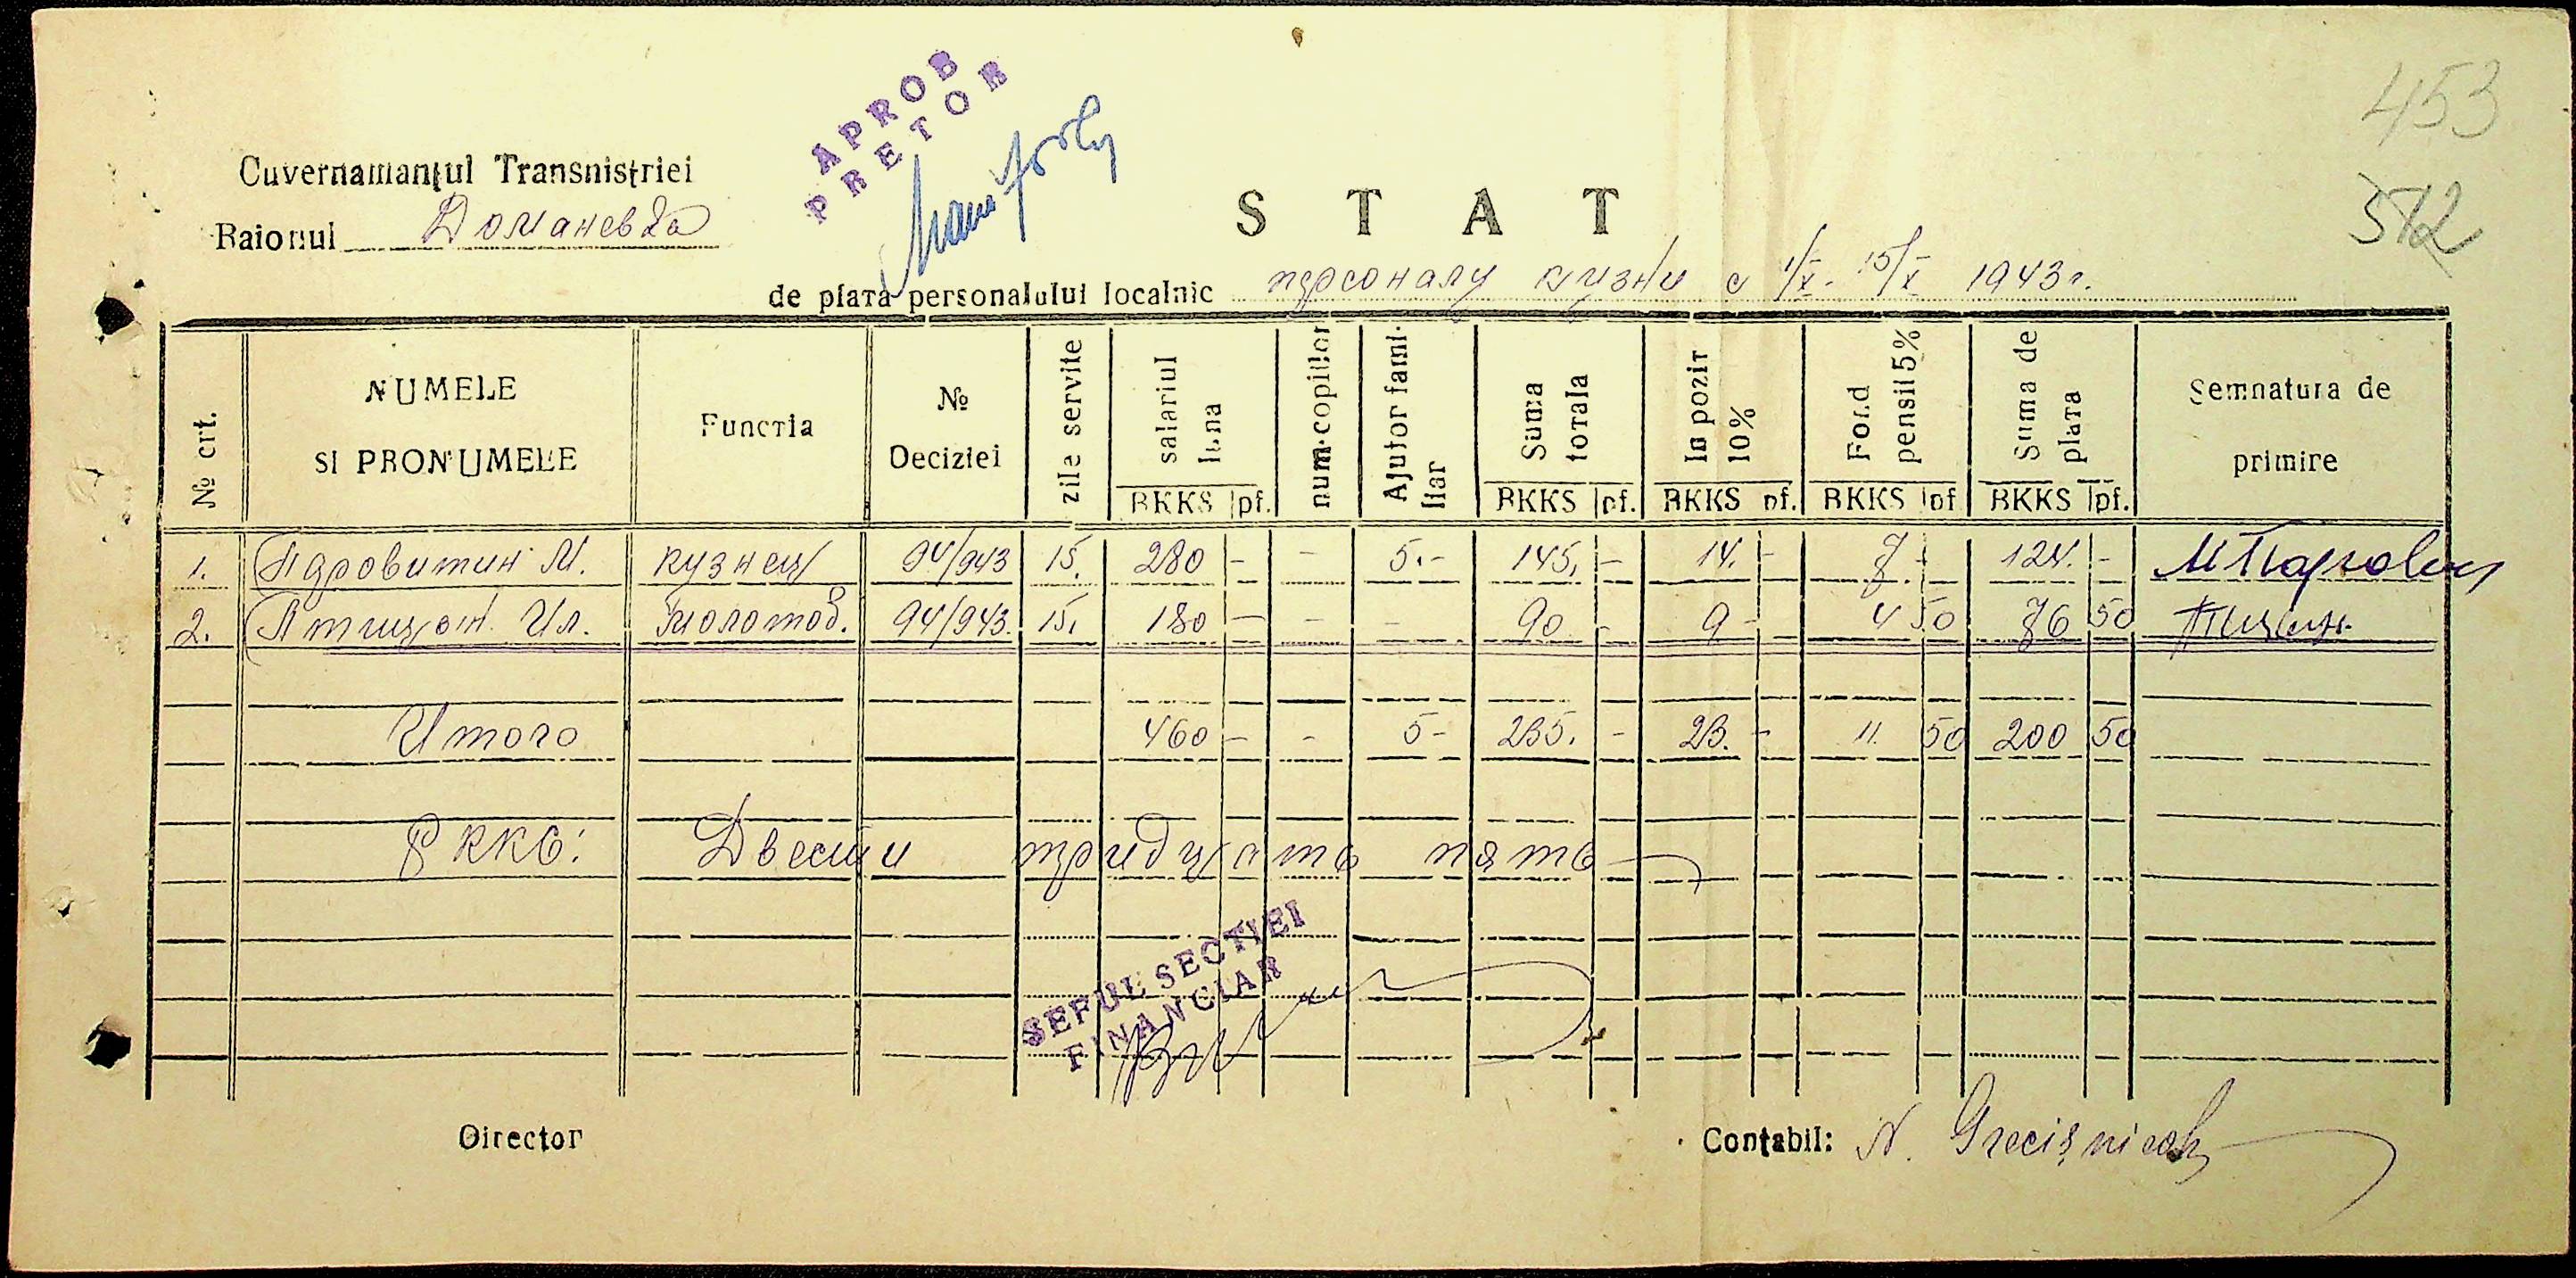 453
512
APROB
PRETOR
Cuvernamanţul Transnistriei
Raionul Доманевка
S T A T
de plата personalului localnic персоналу кузни с 1/X - 15/X 1943г.
№ crt. NUMELE SI PRONUMELE Funcтia № Deciziei zile servite salariul luna RKKS pf. num. copiilor Ajutor familiar Suma тотаla RKKS pf. In pozit 10% RKKS pf. Fond pensii 5% RKKS pf Suma de plата RKKS pf. Semnatura de primire
1. Перовитин М. кузнец 94/943 15. 280 - - 5.- 145. - 14. - 7 - 124. -
2. Птицын Ил. молотоб. 94/943. 15. 180 - - - 90 - 9 - 4 50 76 50
Итого 460 - - 5- 235. - 23. - 11. 50 200 50
РККС: Двести тридцать пять
SEFUL SECTIEI
FINANCIAR
Director
Conţabil: N.